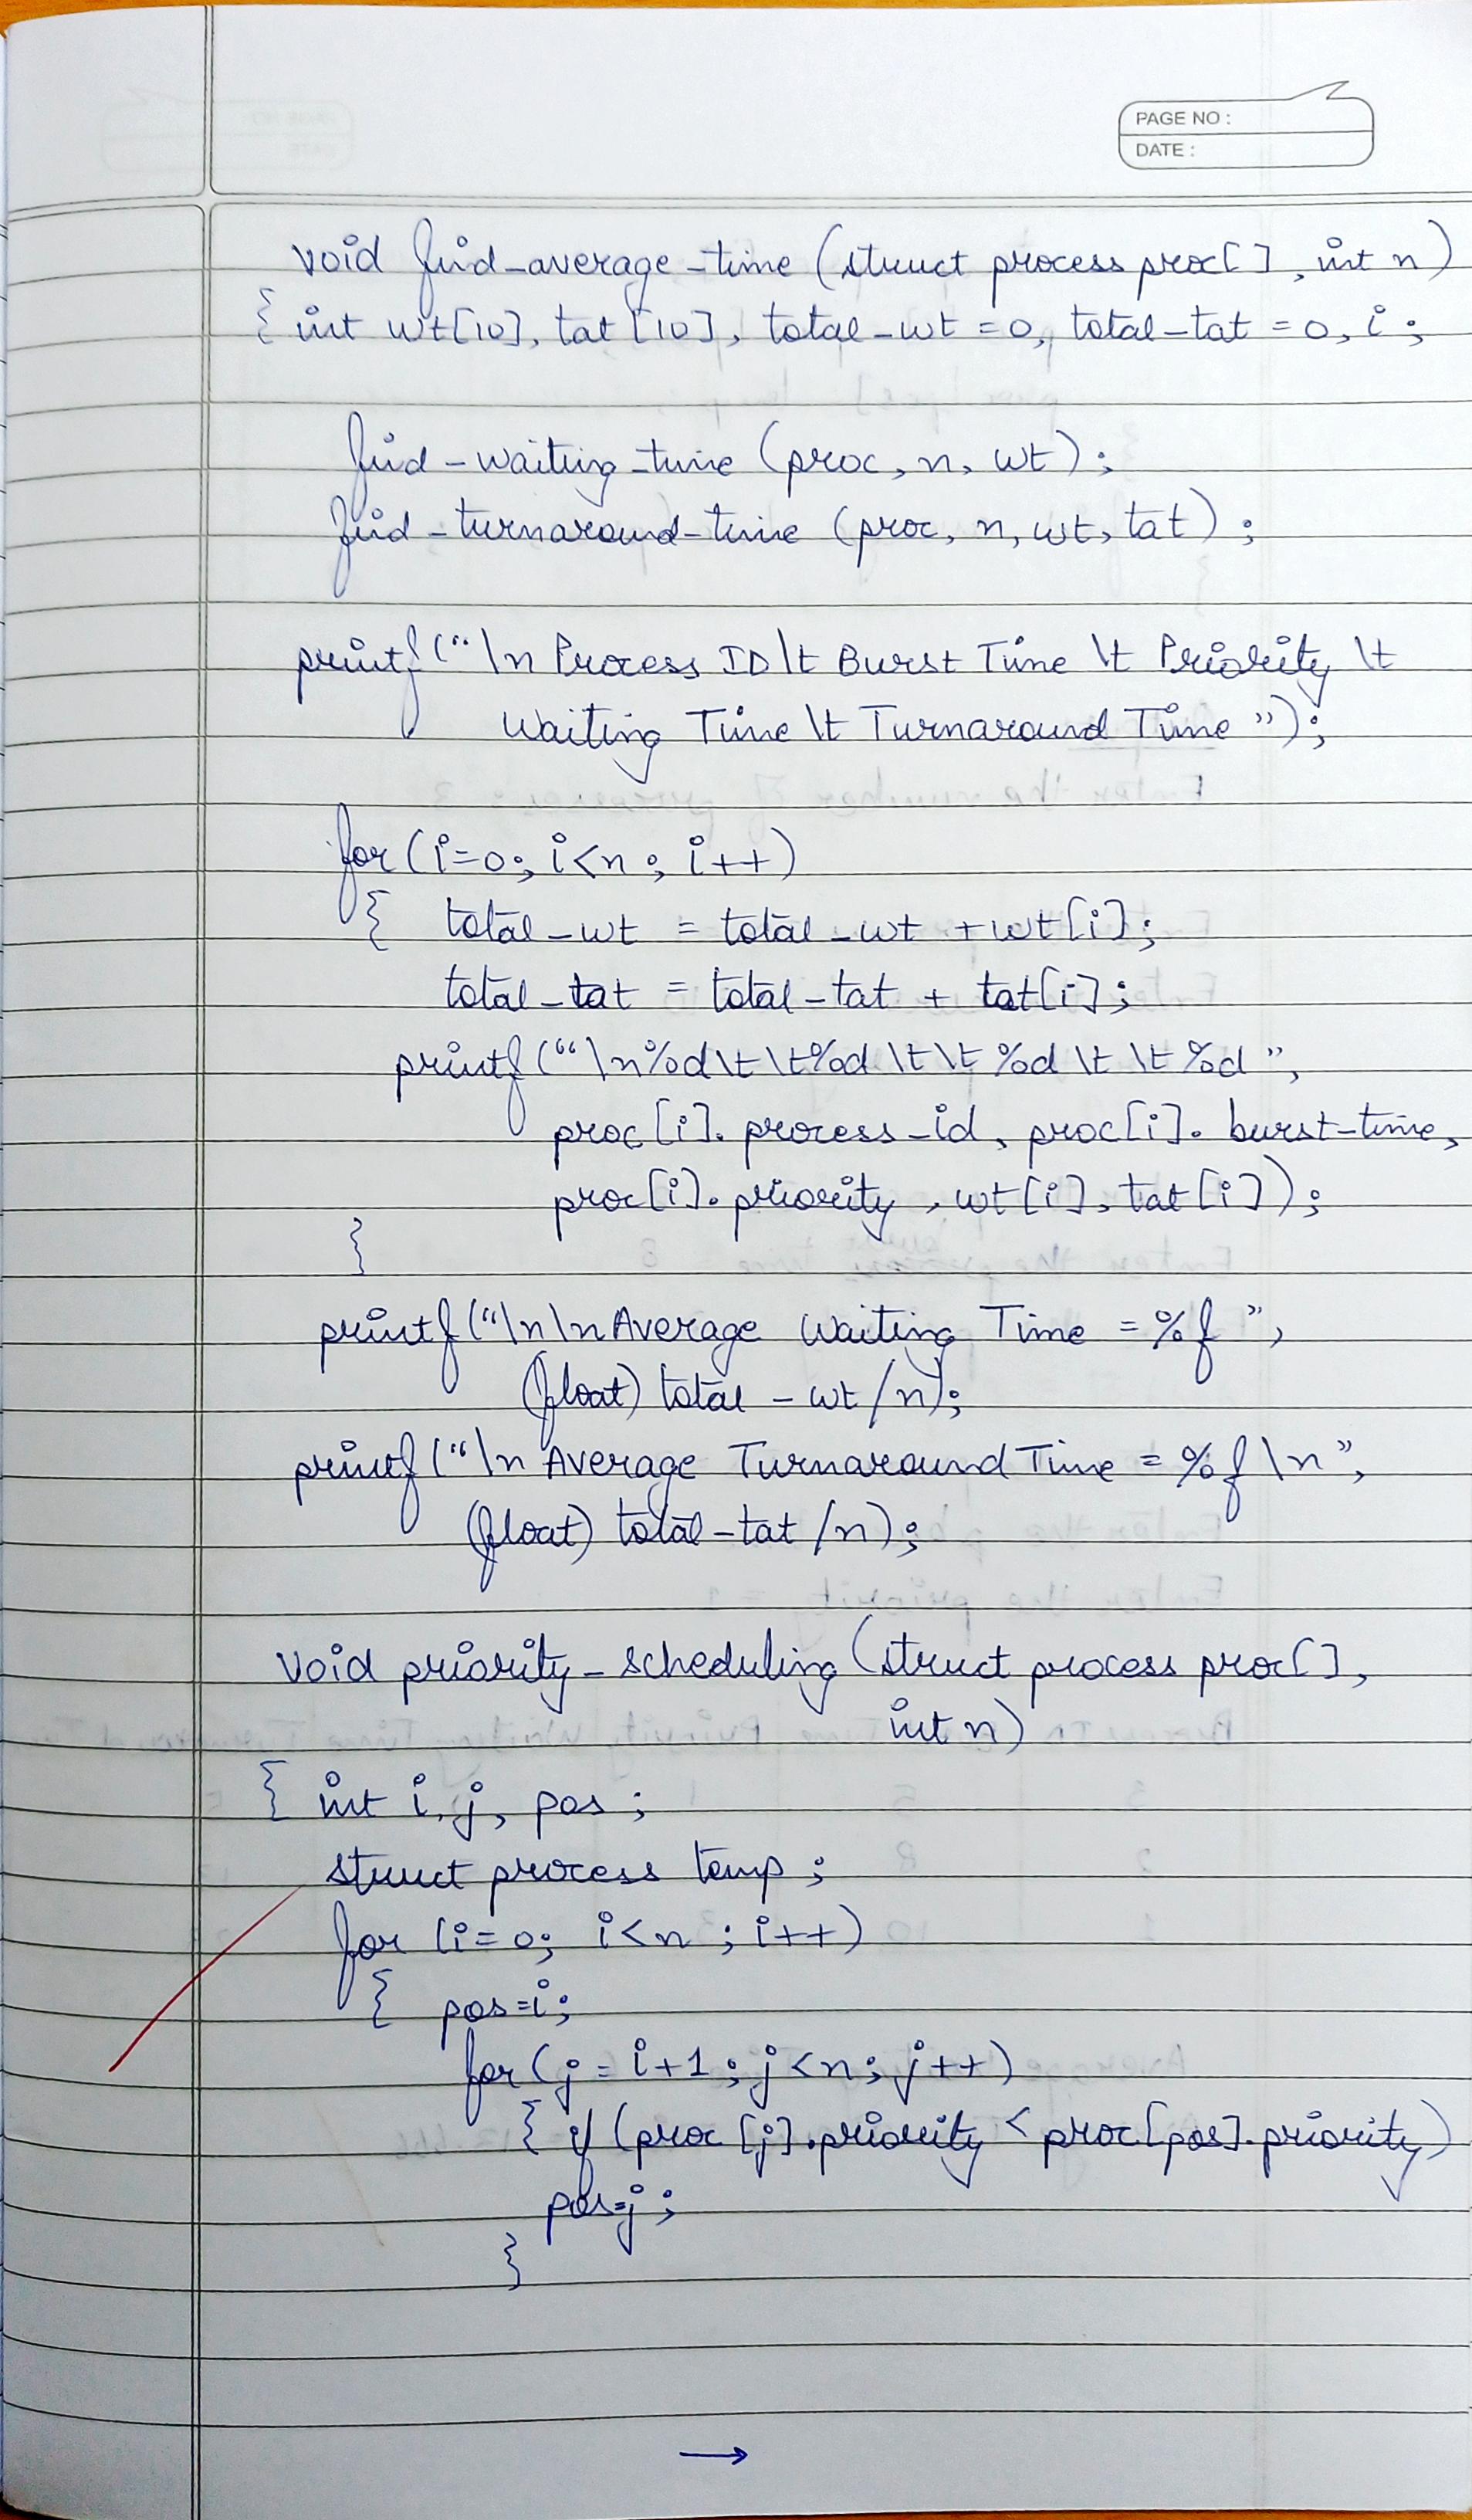 PAGE NO :
DATE :
void find_average_time (struct process proc[], int n)
{ int wt[10], tat[10], total_wt = 0, total_tat = 0, i ;
find_waiting_time (proc, n, wt);
find_turnaround_time (proc, n, wt, tat) ;
printf ("\n Process ID\t Burst Time \t Priority \t
Waiting Time \t Turnaround Time ");
for (i=0; i<n ; i++)
{ total_wt = total_wt + wt[i];
total_tat = total_tat + tat[i];
printf ("\n%d\t \t%d \t\t %d \t \t %d ",
proc[i]. process_id, proc[i]. burst_time,
proc[i]. priority , wt[i], tat[i]);
}
printf ("\n\n Average Waiting Time = %f ",
(float) total_wt /n);
printf ("\n Average Turnaround Time = %f \n",
(float) total_tat /n);
void priority_scheduling (struct process proc[],
int n)
{ int i, j, pos ;
struct process temp ;
for (i=0; i<n ; i++)
{ pos=i;
for (j = i+1 ; j<n; j++)
{ if (proc [j].priority < proc[pos].priority)
pos=j ;
}
→